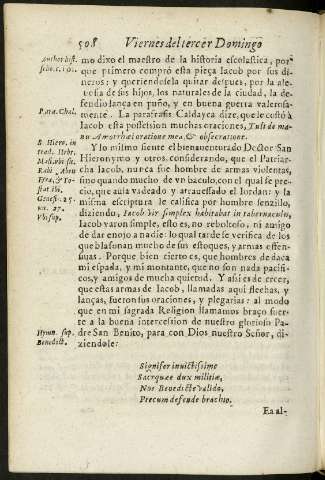 508 Viernes del tercer Domingo
Author hist.
schol. c. 101.
mo dixo el maestro de la historia escolastica, por
que primero compró esta pieça Iacob por sus di-
neros: y queriendosela quitar despues, por la ale-
uosia de sus hijos, los naturales de la ciudad, la de-
fendio lança en puño, y en buena guerra valerosa-
Para. Chal.
mente. La parafrasis Caldayca dize, que le costó à
Iacob esta possession muchas oraciones, Tuli de ma-
nu Amorrhai oratione mea, & obsecratione.
B. Hiero. in
trad. Hebr.
Rabi, Aben
Genes. 25.
nu. 27.
Vbi sup.
Y lo mismo siente el bienauenturado Doctor San
Hieronymo y otros, considerando, que el Patriar-
cha Iacob, nunca fue hombre de armas violentas,
sino quando mucho de vn baculo, con el qual se pre-
cio, que auia vadeado y atrauessado el Iordan: y la
misma escriptura le califica por hombre senzillo,
diziendo, Iacob vir simplex habitabat in tabernaculis,
Iacob varon simple, esto es, no reboltoso, ni amigo
de dar enojo a nadie: lo qual tarde se verifica de los
que blasonan mucho de sus estoques, y armas offen-
siuas. Porque bien cierto es, que hombres de daca
mi espada, y mi montante, que no son nada pacifi-
cos, y amigos de mucha quietud. Y assi es de creer,
que estas armas de Iacob, llamadas aqui flechas, y
lanças, fueron sus oraciones, y plegarias: al modo
que en mi sagrada Religion llamamos braço fuer-
te a la buena intercession de nuestro glorioso Pa-
Hymn. sup.
Benedict.
dre San Benito, para con Dios nuestro Señor, di-
ziendole:
Signifer inuictissime
Sacræque dux militiæ,
Nos Benedicte valido,
Precum defende brachio.
Ea al-